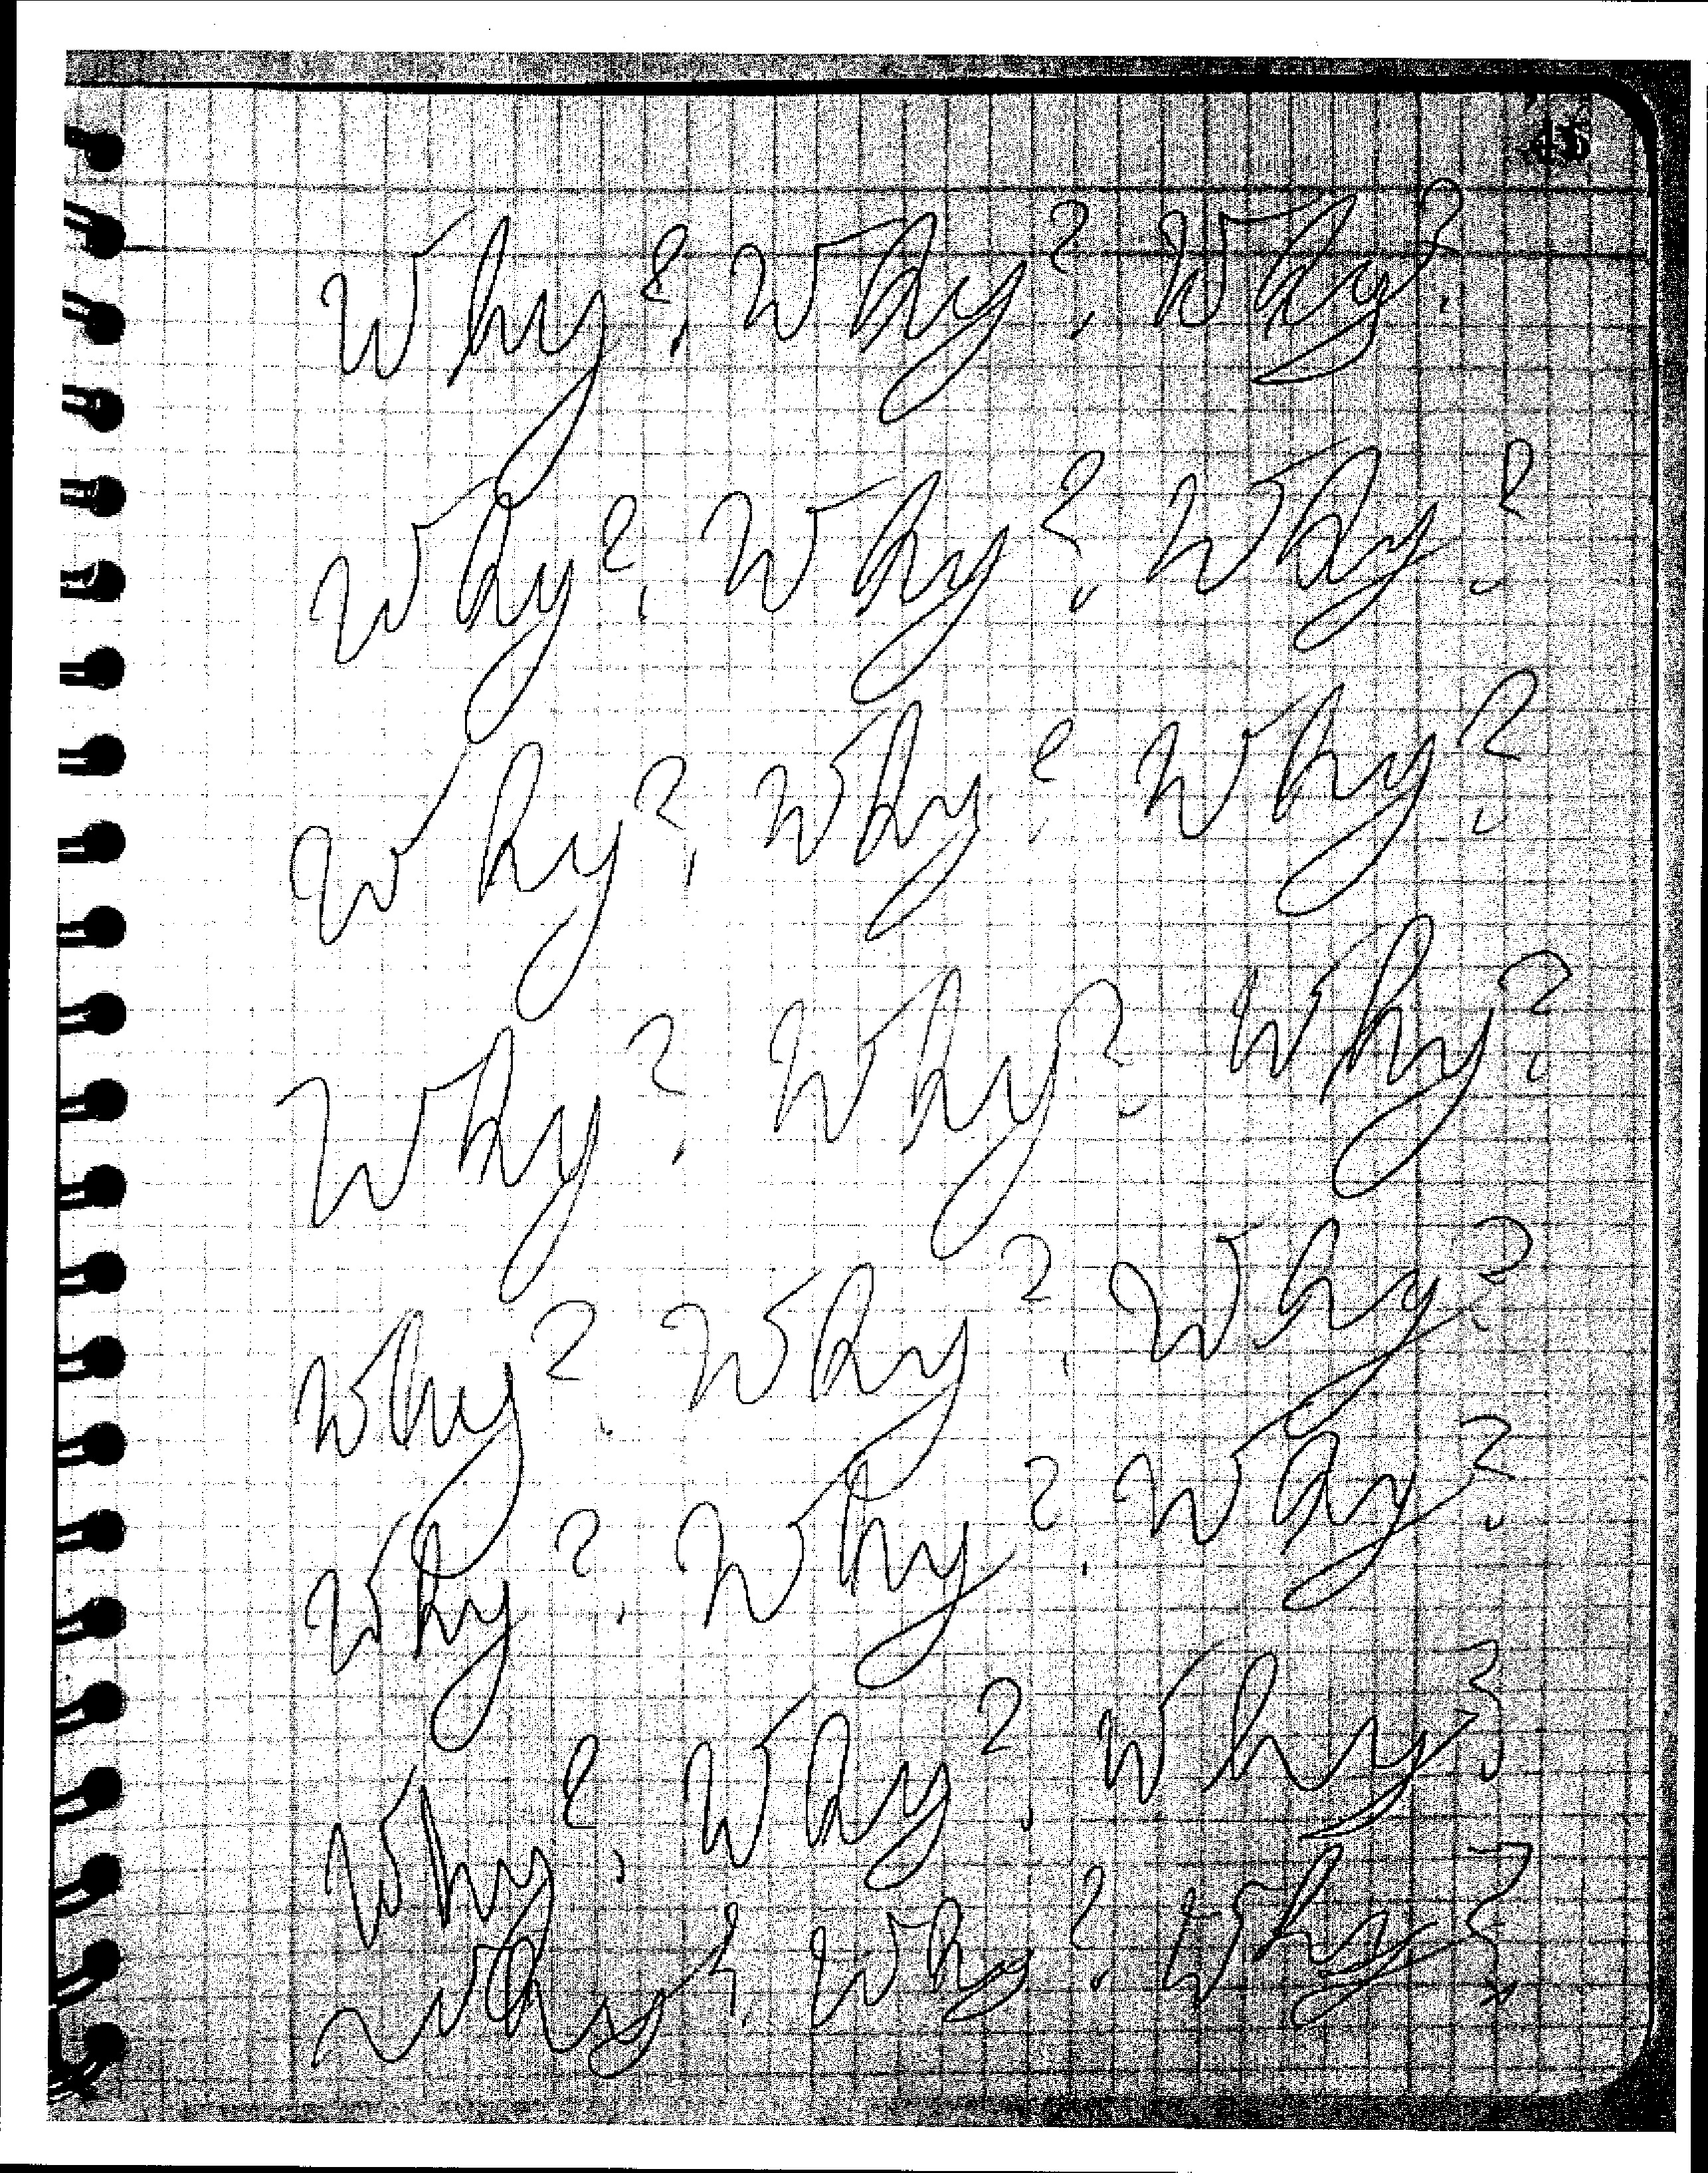 45
Why? Why? Why?
Why? Why? Why?
Why? Why? Why?
Why? Why? Why?
Why? Why? Why?
Why? Why? Why?
Why? Why? Why?
Why? Why? Why?